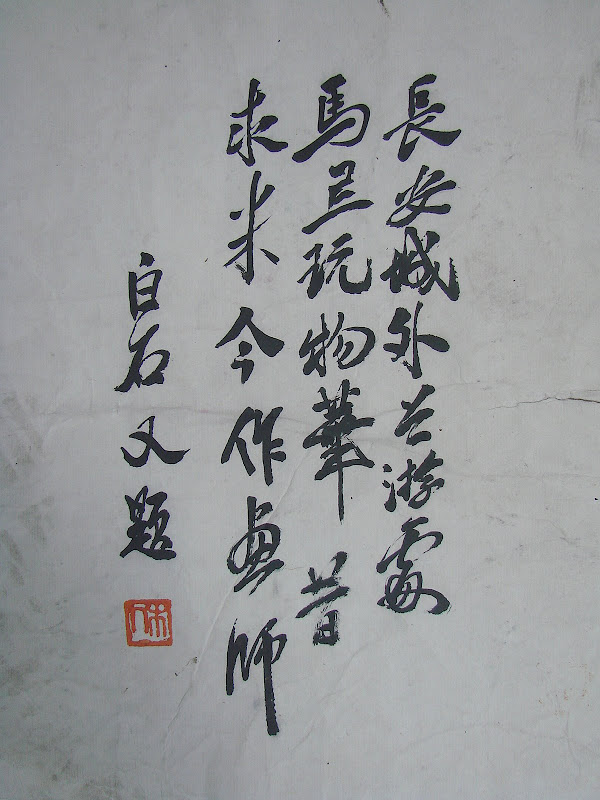 長安城外游處
馬玩物華 昔
求米今作畫師
白石又題
木人